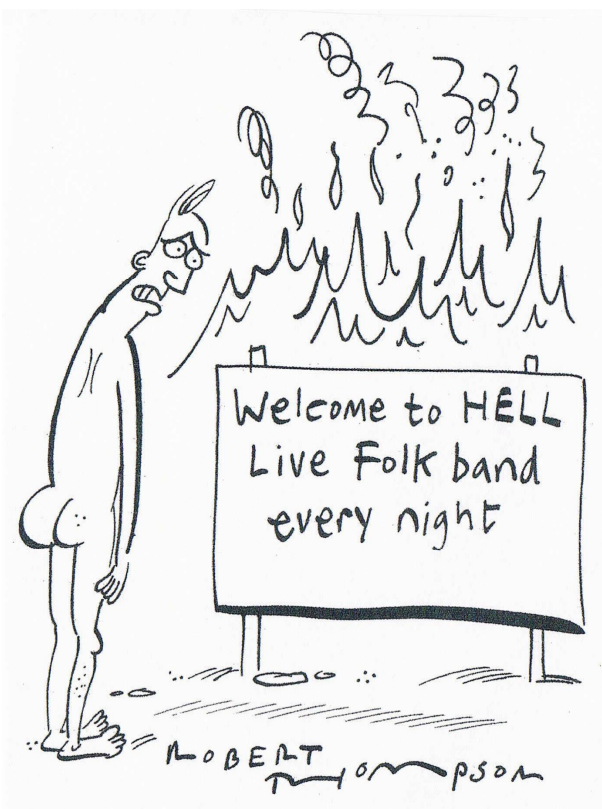 Welcome to HELL
Live Folk band
every night
ROBERT
THOMPSON